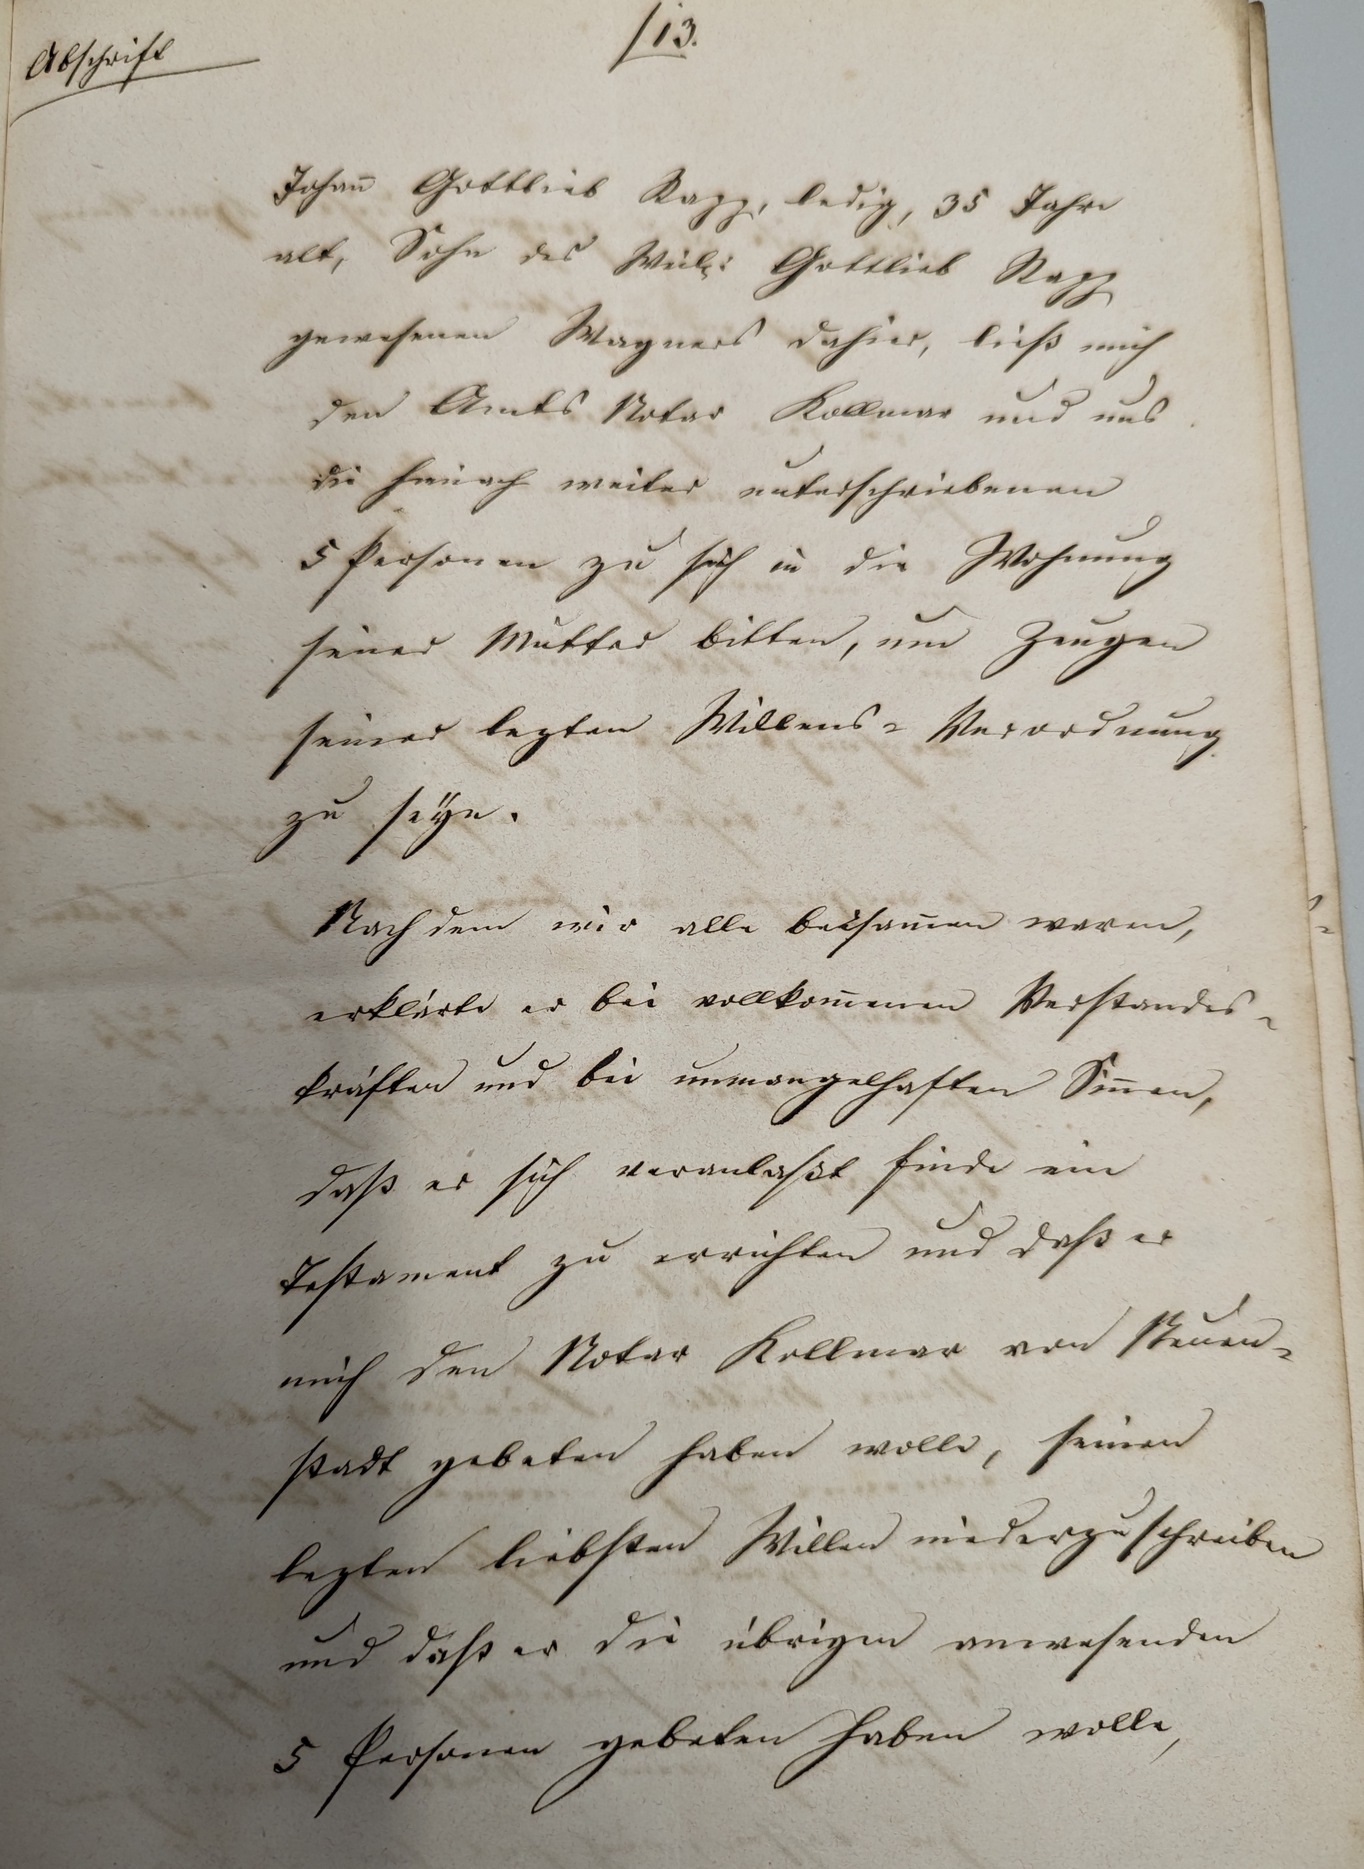 Abschrift
/13.
Johan̄ Gottlieb Rapp, ledig, 35 Jahre
alt, Sohn des Weil: Gottlieb Rapp
gewesenen Wagners dahier, ließ mich
den Amts Notar Kollmar und uns
die hienach weiter unterschriebenen
5 Personen zu sich in die Wohnung
seiner Mutter bitten, um Zeugen
seiner lezten Willens- Verordnung
zu seÿn.
Nachdem wir alle beisam̄en waren,
erklärte er bei vollkom̄enen Verstandes-
kräften und bei unmangelhaften Sin̄en,
daß er sich veranlaßt finde ein
Testament zu errichten und daß er
mich den Notar Kollmar von Neuen-
stadt gebeten haben wolle, seinen
lezten liebsten Willen niederzuschreiben
und daß er die übrigen anwesenden
5 Personen gebeten haben wolle,